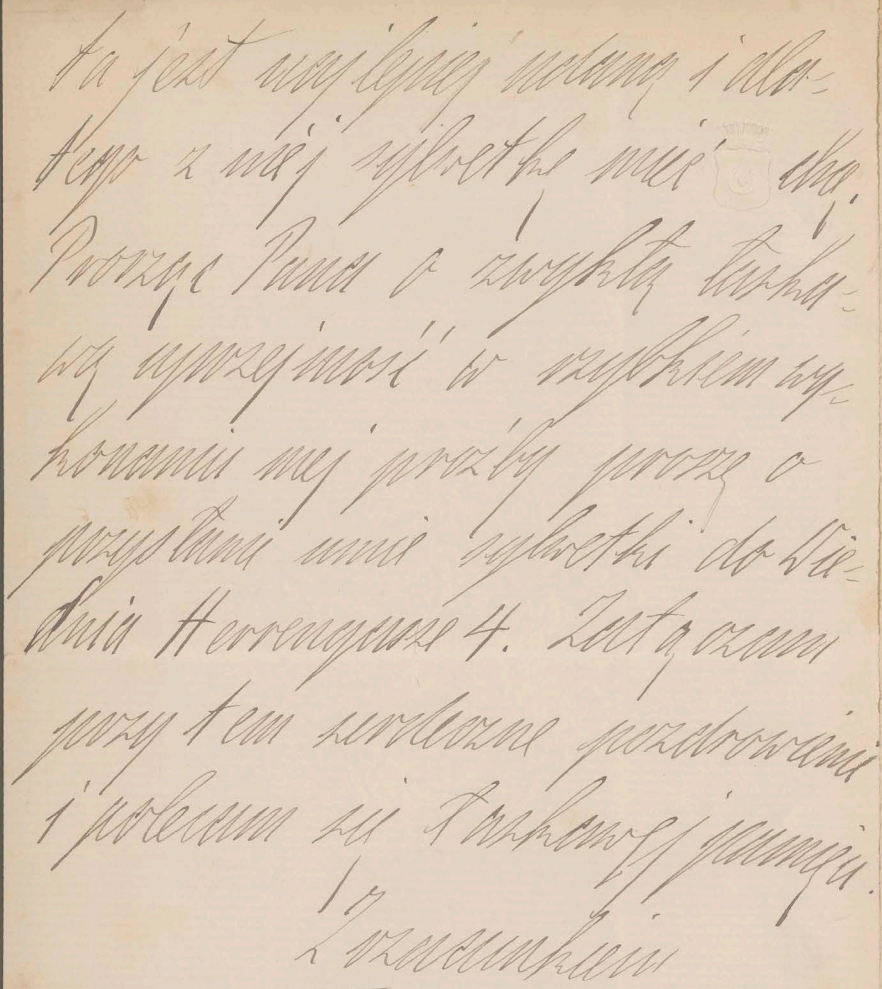 ta jest najlepiej udaną i dla-
tego z niéj sylwetkę mieć chę.
Prosząc Pana o zwykłą łaska-
wą uprzejmość w szybkiem wy-
konaniu mej prośby proszę o
przysłanie mnie sylwetki do Wie-
dnia Herrengasse 4. Załączam
przy tem serdeczne pozdrowienie
i polecam się łaskawej pamięci.
Z szacunkiem